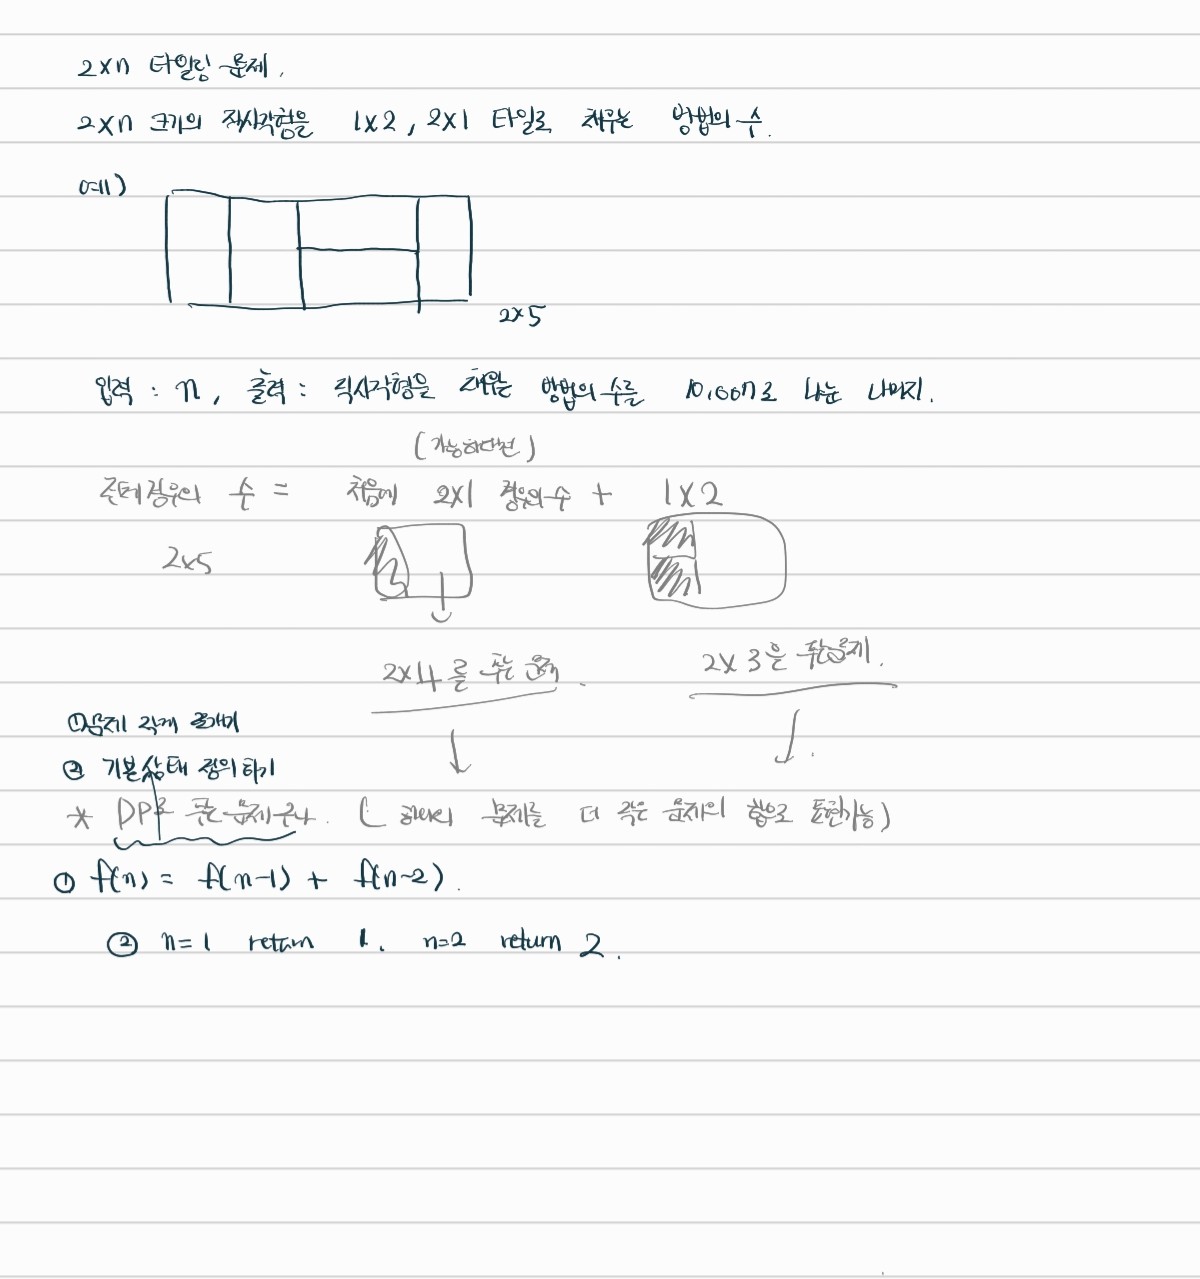 2×n 타일링 문제.
2×n 크기의 직사각형을 1×2, 2×1 타일로 채우는 방법의 수.
예)
2×5
입력 : n, 출력 : 직사각형을 채우는 방법의 수를 10,007로 나눈 나머지.
(가능하다면)
전체경우의 수 = 처음에 2×1 경우의수 + 1×2
2×5
2×4를 푸는 문제. 2×3을 푸는문제.
①문제 작게 쪼개기
② 기본상태 정의하기
* DP로 푸는 문제구나. ( 하나의 문제를 더 작은 문제의 합으로 표현가능)
① f(n) = f(n-1) + f(n-2).
② n=1 return 1. n=2 return 2.